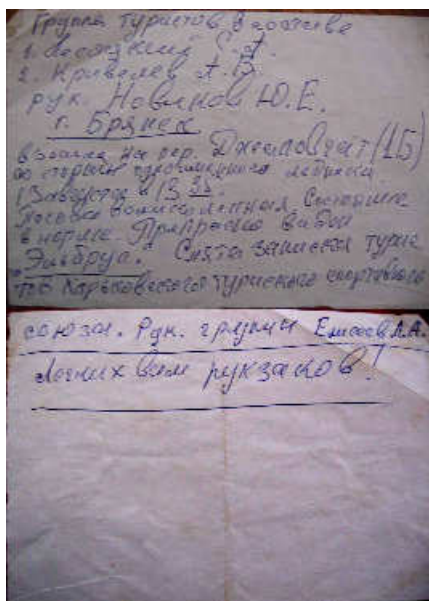 Группа туристов в составе
1. С.А.
2. Кривелев А.В.
рук. Новиков Ю.Е.
г. Брянск
взошла на пер. Джаловчат (1Б)
со стороны одноименного ледника
13 августа в 13 35.
Погода Состояние
в норме. Прекрасно виден
Эльбрус. Снята записка турис
тов Харьковского туристского спортивного
союза. Рук. группы Елисеев Л.А.
Легких вам рюкзаков!